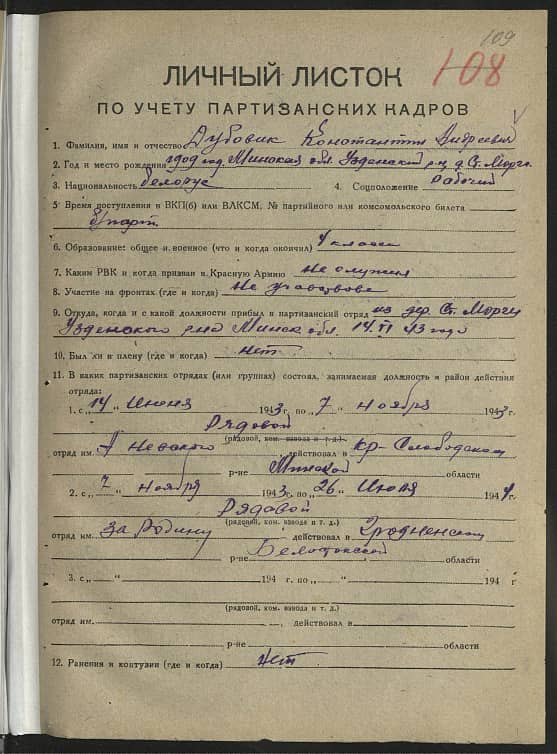 109
108
ЛИЧНЫЙ ЛИСТОК
ПО УЧЕТУ ПАРТИЗАНСКИХ КАДРОВ
1. Фамилия, имя и отчество Дубовик Константин Андреевич
2. Год и место рождения 1909 год Минская обл. Узденский р-н д. Ст. Морги
3. Национальность белорус 4. Соцположение рабочий
5. Время поступления в ВКП(б) или ВЛКСМ, № партийного или комсомольского билета
б/парт
6. Образование: общее и военное (что и когда окончил) 4 класса
7. Каким РВК и когда призван в Красную Армию не служил
8. Участие на фронтах (где и когда) не участвовал
9. Откуда, когда и с какой должности прибыл в партизанский отряд из дер. Ст. Морги
Узденского р-на Минск. обл. 14.VI 43 года
10. Был ли в плену (где и когда) нет
11. В каких партизанских отрядах (или группах) состоял, занимаемая должность и район действия
отряда:
1. с „14“ Июня 1943 г. по „7“ ноября 1943 г.
Рядовой
(рядовой, ком. взвода и т. д.)
отряд им. А Невского действовал в Кр-Слободском
р-не Минской области
2. с „7“ ноября 1943 г. по „26“ Июля 1944 г.
Рядовой
(рядовой, ком. взвода и т. д.)
отряд им. За Родину действовал в Гродненском
р-не Белостокской области
3. с „ “ 194 г. по „ “ 194 г
(рядовой, ком. взвода и т. д.)
отряд им. , действовал в
р-не области
12. Ранения и контузии (где и когда) нет